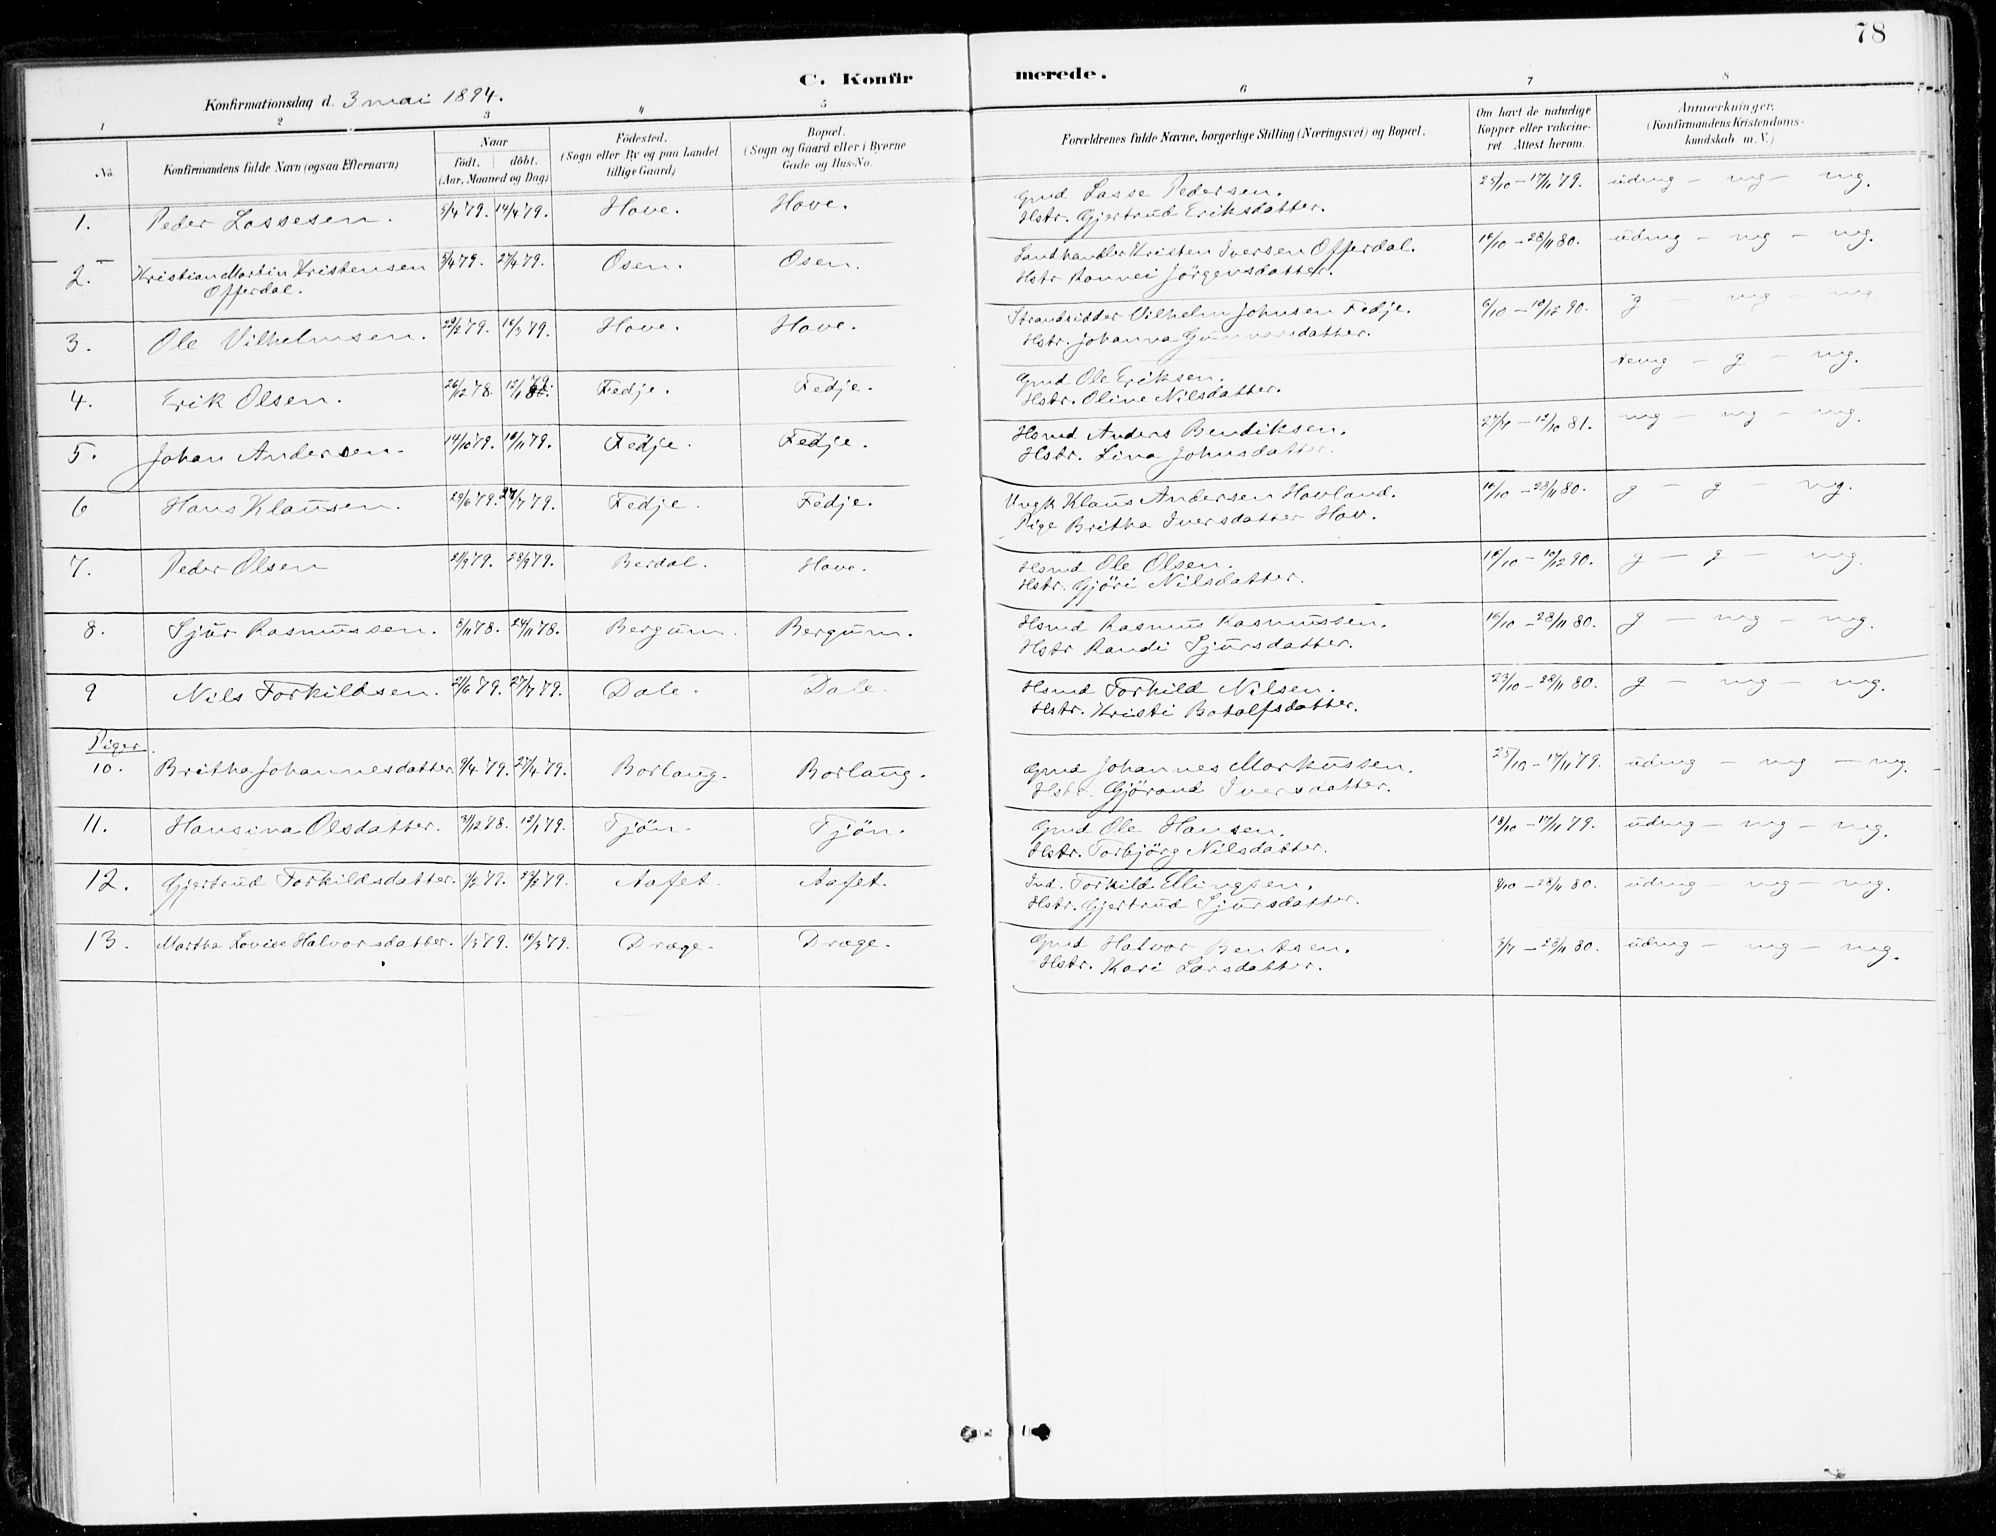 78
C. Konfirmerede.
Konfirmationsdag d. 3 mai 1894.
1 2 3 4 5 6 7 8
No.
Konfirmandens fulde Navn (ogsaa Efternavn)
Naar
født. | døbt.
(Aar, Maaned og Dag)
Fødested.
(Sogn eller By og paa Landet
tillige Gaard)
Bopæl.
(Sogn og Gaard eller i Byerne
Gade og Hus-No.
Forældrenes fulde Navne, borgerlige Stilling (Næringsvei) og Bopæl.
Om havt de naturlige
Kopper eller vakcine-
ret. Attest herom.
Anmærkninger.
(Konfirmandens Kristendoms-
kundskab m. V.)
1. Peder Lassesen. 5/4 79. 14/4 79. Hove. Hove. Gmd Lasse Pedersen. 25/10 – 17/11 79. udmg – mg – mg.
Hstr. Gjertrud Eriksdatter.
2. Kristian Martin Kristensen 5/4 79. 27/4 79. Osen. Osen. Landhandler Kristen Iversen Offerdal. 16/10 – 28/11 80. udmg – mg – mg.
Offerdal. Hstr Rannei Jørgensdatter.
3. Ole Vilhelmsen. 16/3 79. Hove. Hove. Strandsidder Vilhelm Johnsen Fedje. 6/10 – 10/12 90. g – mg – mg
Hstr. Johanna Gunvarsdatter.
4. Erik Olsen. 26/12 78. 12/1 79. Fedje. Fedje. Gmd Ole Eriksen. temg – g – mg.
Hstr. Oline Nilsdatter.
5. Johan Andersen. 14/10 79. 16/11 79. Fedje Fedje. Hsmd Anders Bendiksen. 12/10 81. mg – mg – mg.
Hstr. Lina Johnsdatter.
6 Hans Klausen. 29/6 79. 27/7 79. Fedje. Fedje. Ungk Klaus Andersen Hovland. 16/10 – 28/11 80. g – g – mg.
Pige Britha Iversdatter Hov.
7. Peder Olsen 2/9 79. 28/9 79. Berdal. Hove. Hsmd Ole Olsen. 16/10 – 10/12 90. g – g – mg.
Hstr. Gjøri Nilsdatter.
8. Sjur Rasmussen. 6/11 78. 24/11 78. Bergum. Bergum. Hsmd Rasmus Rasmussen. 16/10 – 28/11 80. g – mg – mg.
Hstr Randi Sjursdatter.
9 Nils Torkildsen. 21/6 79. 27/7 79. Dale. Dale. Hsmd Torkild Nilsen. 23/10 – 28/11 80. g – mg – mg.
Hstr. Kristi Botolfsdatter.
Piger.
10. Britha Johannesdatter 9/4 79. 27/4 79. Borlaug. Borlaug. Gmd Johannes Markussen. 25/10 – 17/11 79. udmg – mg – mg.
Hstr. Gjørond Iversdatter.
11. Hansina Olsdatter. 31/12 78. 12/1 79. Tjøn. Tjøn. Gmd Ole Hansen. 18/10 – 17/11 79. udmg – mg – mg.
Hstr. Torbjørg Nilsdatter.
12. Gjertrud Torkildsdatter. 9/2 79. 23/2 79. Aafet. Aafet. Ind. Torkild Ellingsen. 9/10 – 28/11 80. udmg – mg – mg.
Hstr. Gjertrud Sjursdatter.
13. Martha Lovise Halvorsdatter. 1/3 79. 16/3 79. Dræge. Dræge. Gmd Halvor Bentsen. 28/11 80. udmg – mg – mg.
Hstr. Kari Larsdatter.